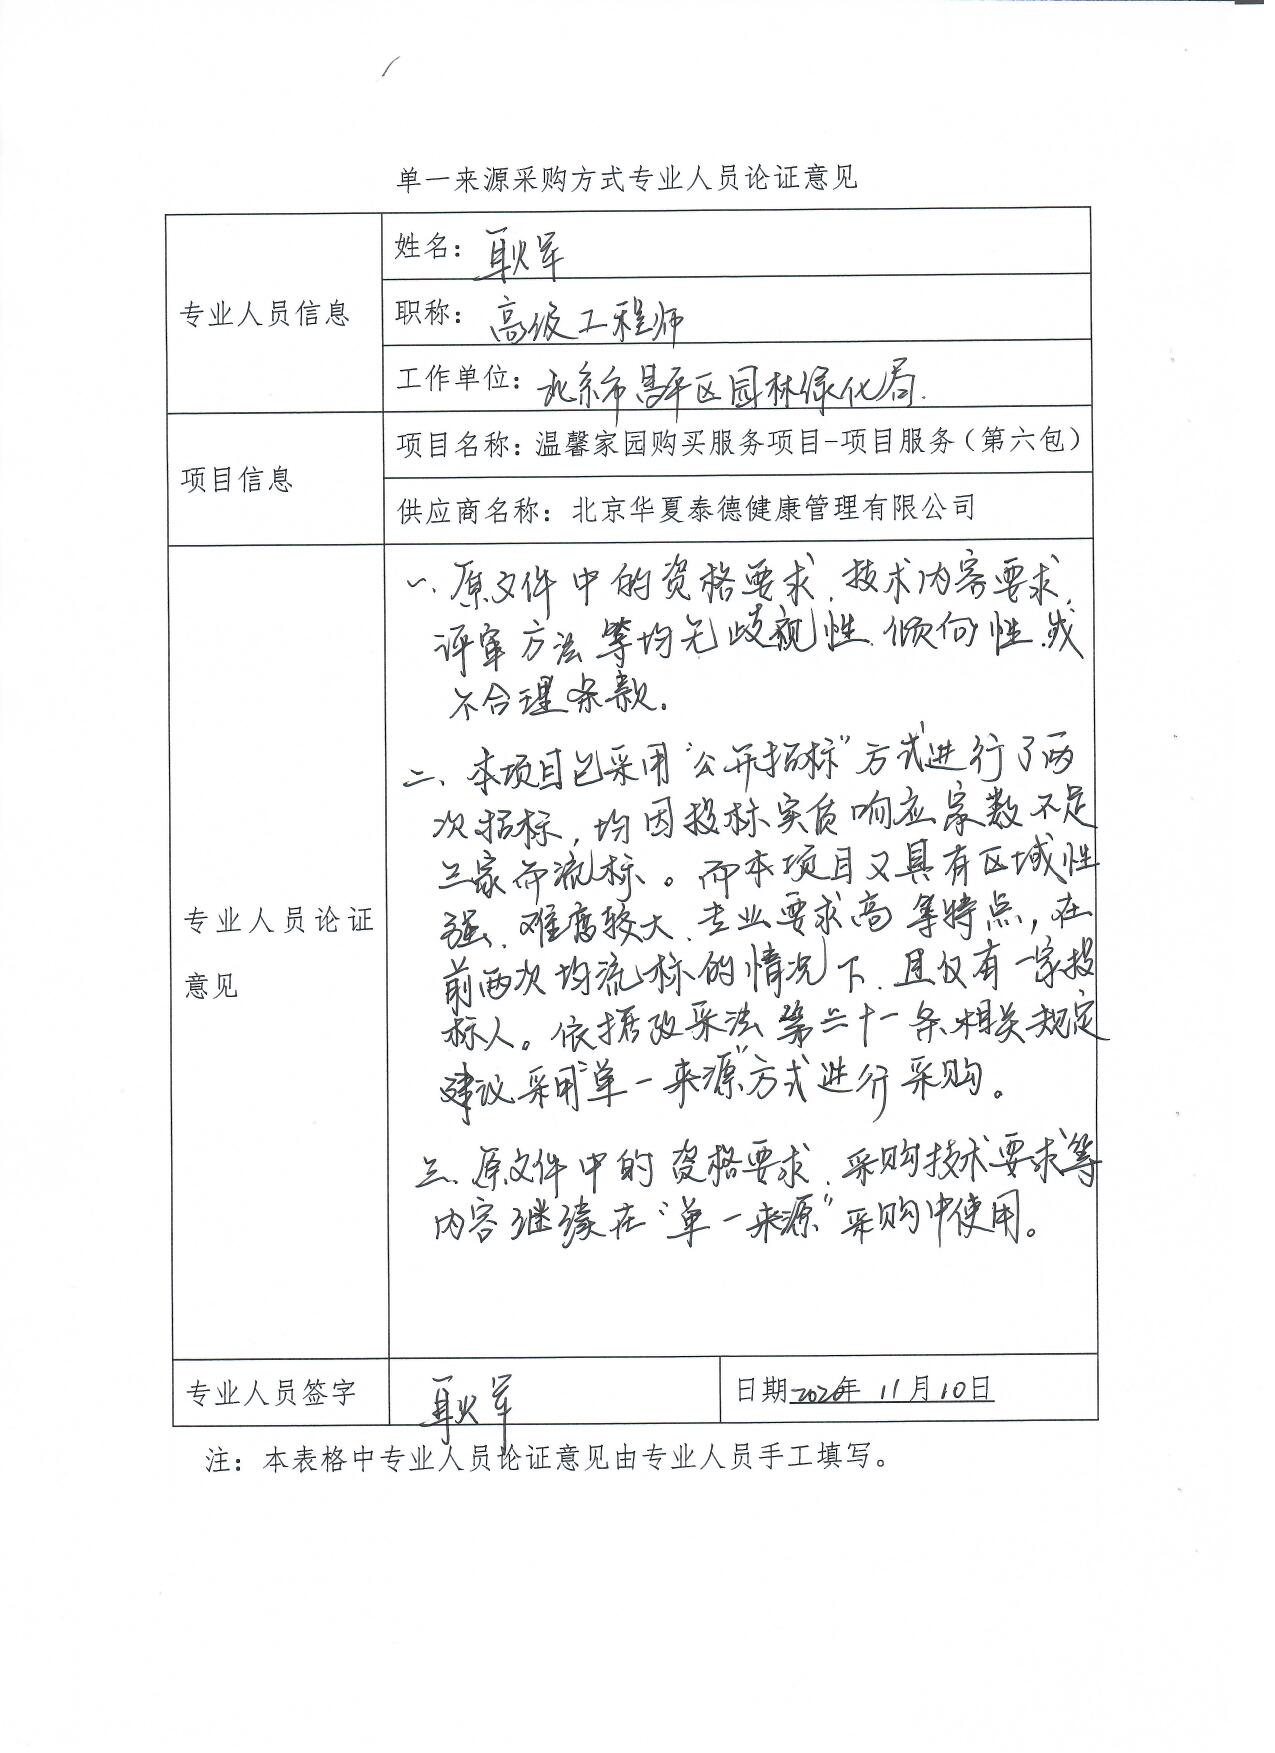 单一来源采购方式专业人员论证意见
专业人员信息
姓名：耿军
职称：高级工程师
工作单位：北京市昌平区园林绿化局.
项目信息
项目名称：温馨家园购买服务项目-项目服务（第六包）
供应商名称：北京华夏泰德健康管理有限公司
专业人员论证
意见
一、原文件中的资格要求、技术内容要求、
评审方法等均无歧视性、倾向性或
不合理条款。
二、本项目已采用“公开招标”方式进行了两
次招标，均因投标实质响应家数不足
三家而流标。而本项目又具有区域性
强、难度较大、专业要求高等特点，在
前两次均流标的情况下、且仅有一家投
标人。依据政采法第三十一条相关规定
建议采用“单一来源”方式进行采购。
三、原文件中的资格要求、采购技术要求等
内容继续在“单一来源”采购中使用。
专业人员签字
耿军
日期2020年 11月10日
注：本表格中专业人员论证意见由专业人员手工填写。